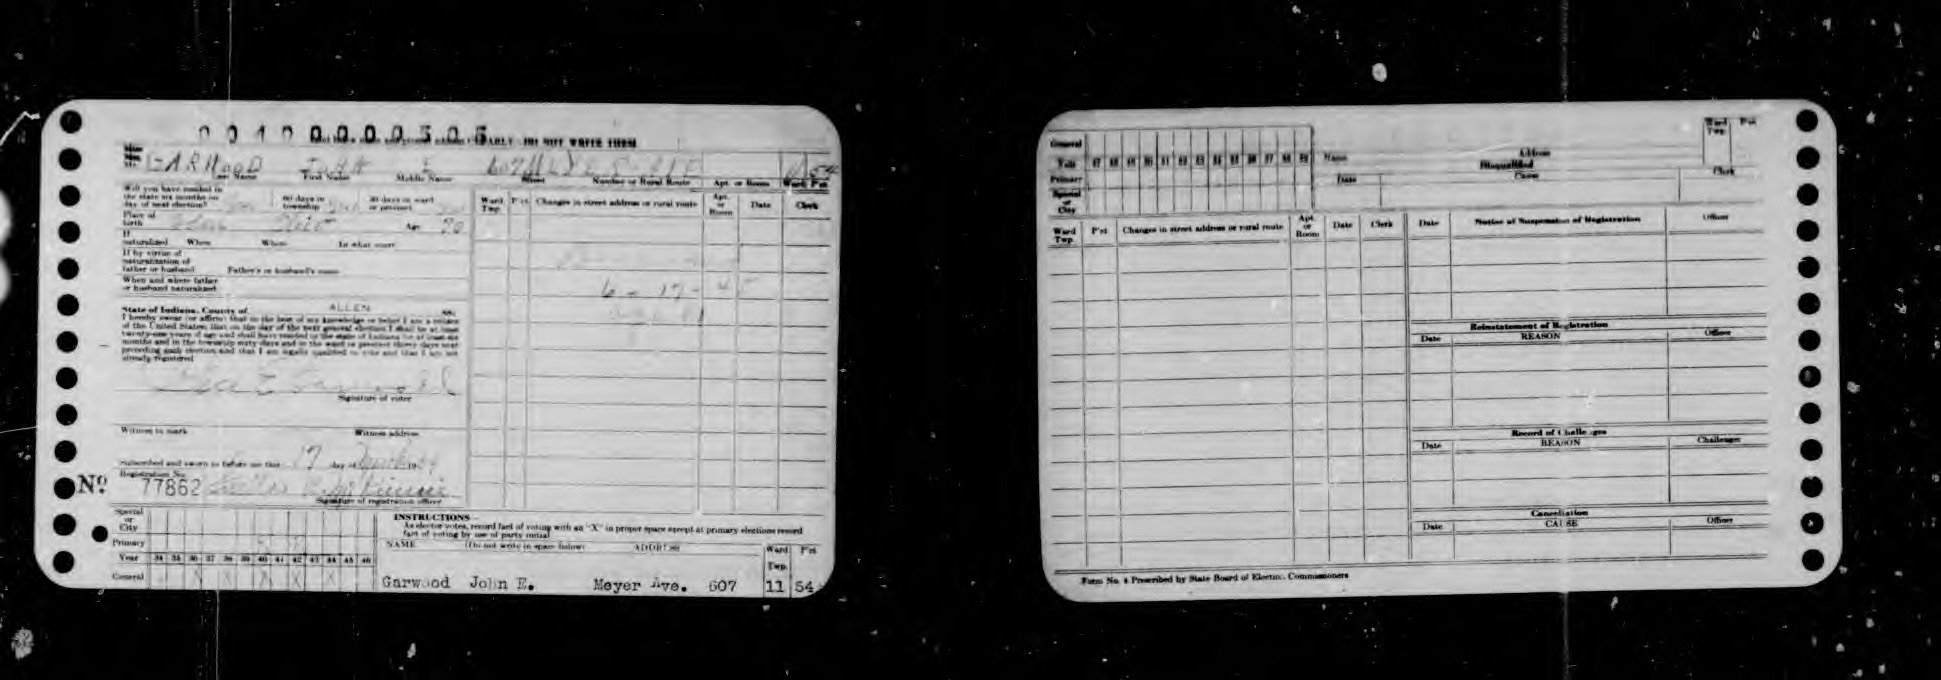 0 0 4 0 0 0 0 0 5 0 5
DO NOT WRITE THEM
GARWOOD JOHN E 607 MEYER AVE 11 54
Last Name First Name Middle Name Street Number or Rural Route Apt. or Room Ward P'ct
Will you have resided in
the state six months on 60 days in 30 days in ward
day of next election? township or precinct
Place of
birth Ohio Age 70
If
naturalized When Where In what court
If by virtue of
naturalization of
father or husband Father's or husband's name
When and where father
or husband naturalized
State of Indiana, County of ALLEN ss:
I hereby swear (or affirm) that to the best of my knowledge or belief I am a citizen
of the United States; that on the day of the next general election I shall be at least
twenty-one years of age and shall have resided in the state of Indiana for at least six
months and in the township sixty days and in the ward or precinct thirty days next
preceding such election and that I am legally qualified to vote and that I am not
already registered
E Garwood
Signature of voter
Witness to mark Witness address
Subscribed and sworn to before me this 17 day of March 19
Registration No.
Nº 77862
Signature of registration officer
Ward Twp. P'ct Changes in street address or rural route Apt. or Room Date Clerk
6 - 17 - 45
Special
or
City
Primary
Year 34 35 36 37 38 39 40 41 42 43 44 45 46
General X X X X X
INSTRUCTIONS—
As elector votes, record fact of voting with an "X" in proper space except at primary elections record
fact of voting by use of party initial
NAME (Do not write in space below) ADDRESS Ward Twp. P'ct
Garwood John E. Meyer Ave. 607 11 54
General
Year 47 48 49 50 51 52 53 54 55 56 57 58 59
Primary
Special
or
City
Name Address Ward Twp. P'ct
Disqualified
Date Cause Clerk
Ward Twp. P'ct Changes in street address or rural route Apt. or Room Date Clerk
Date Notice of Suspension of Registration Officer
Reinstatement of Registration
Date REASON Officer
Record of Challenges
Date REASON Challenger
Cancellation
Date CAUSE Officer
Form No. 4 Prescribed by State Board of Election Commissioners